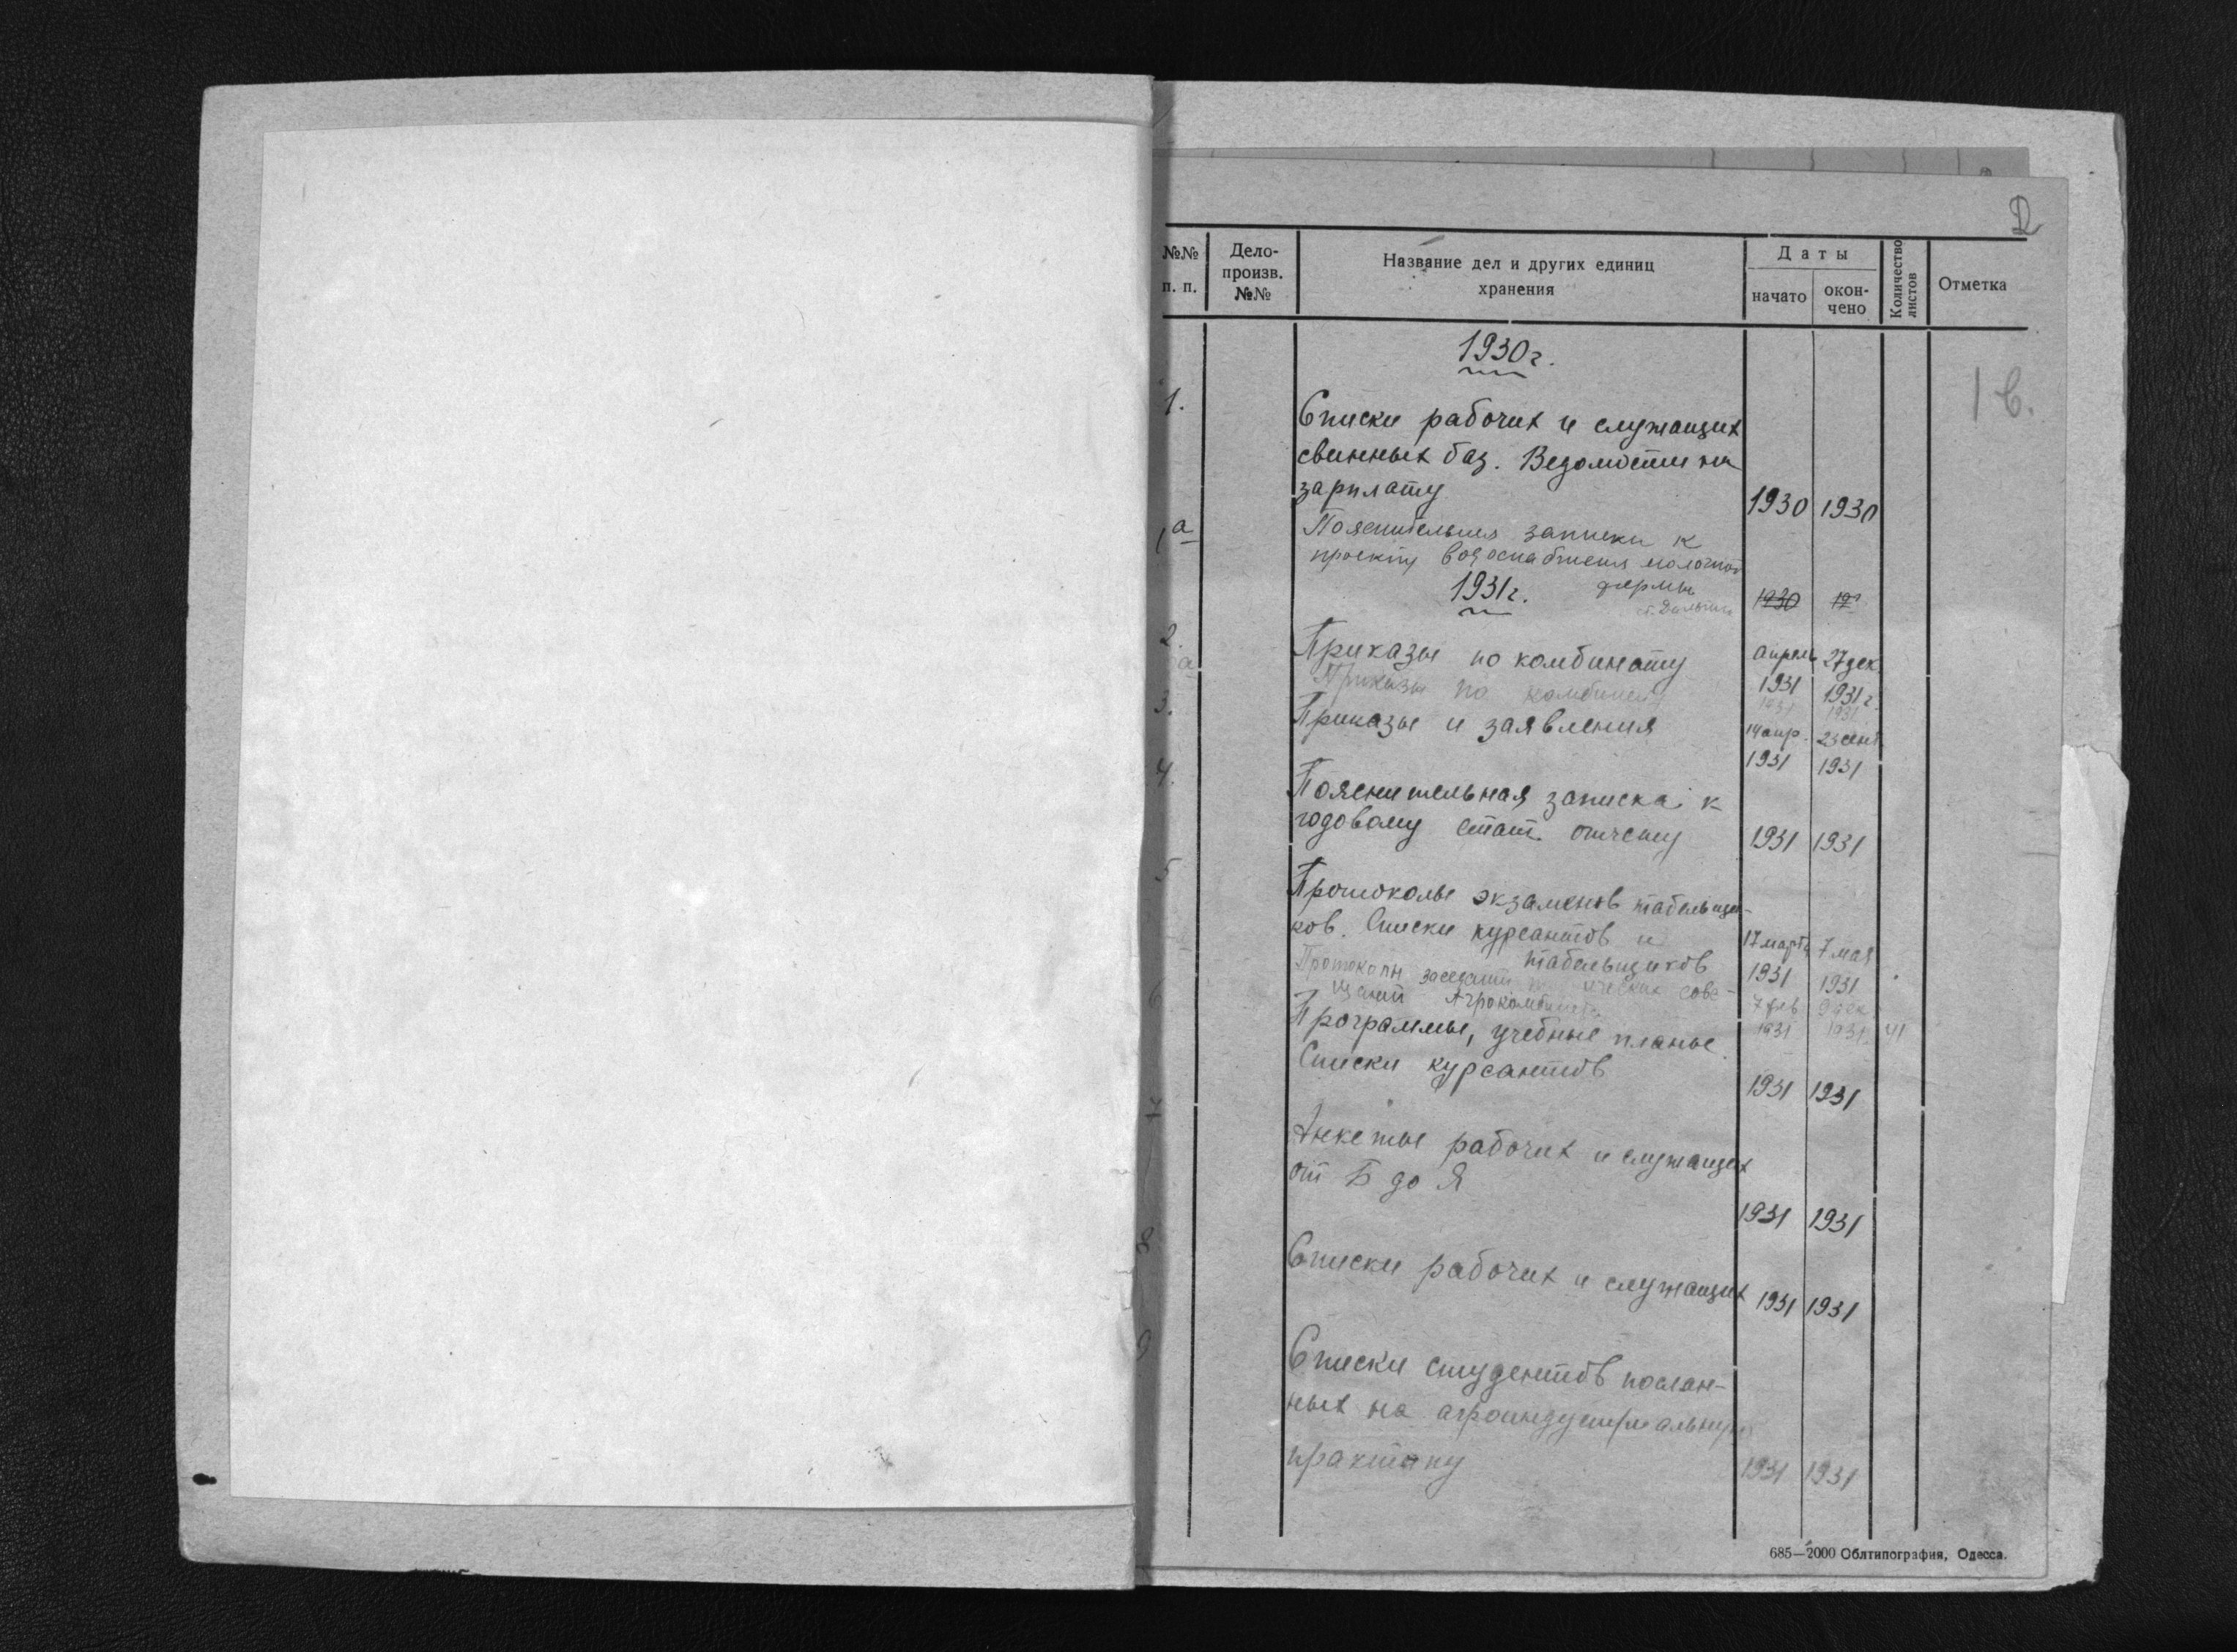 №№ п. п. Дело-произв. №№ Название дел и других единиц хранения Даты начато окон-чено Количество листов Отметка
1930 г.
1 в.
1. Списки рабочих и служащих
свинных баз. Ведомости на
зарплату 1930 1930
1а Пояснительная записки к
проекту водоснабжения молочной
фермы
1930
1931 г.
2. Приказы по комбинату апрель 1931 27 дек. 1931 г.
а Приказы по комбинату 1931 1931
3. Приказы и заявления 14 апр. 1931 23 сент. 1931
4. Пояснительная записка к
годовому стат. отчету 1931 1931
5 Протоколы экзаменов табельщи-
ков. Списки курсантов и
табельщиков 17 марта 1931 7 мая 1931
Протоколы заседаний сове-
щаний Агрокомбината 7 фев 1931 1931 41
6 Программы, учебные планы.
Списки курсантов 1931 1931
7 Анкеты рабочих и служащих
от Б до Я 1931 1931
8 Списки рабочих и служащих 1931 1931
9 Списки студентов послан-
ных на агроиндустриальную
практику 1931 1931
685—2000 Облтипография, Одесса.